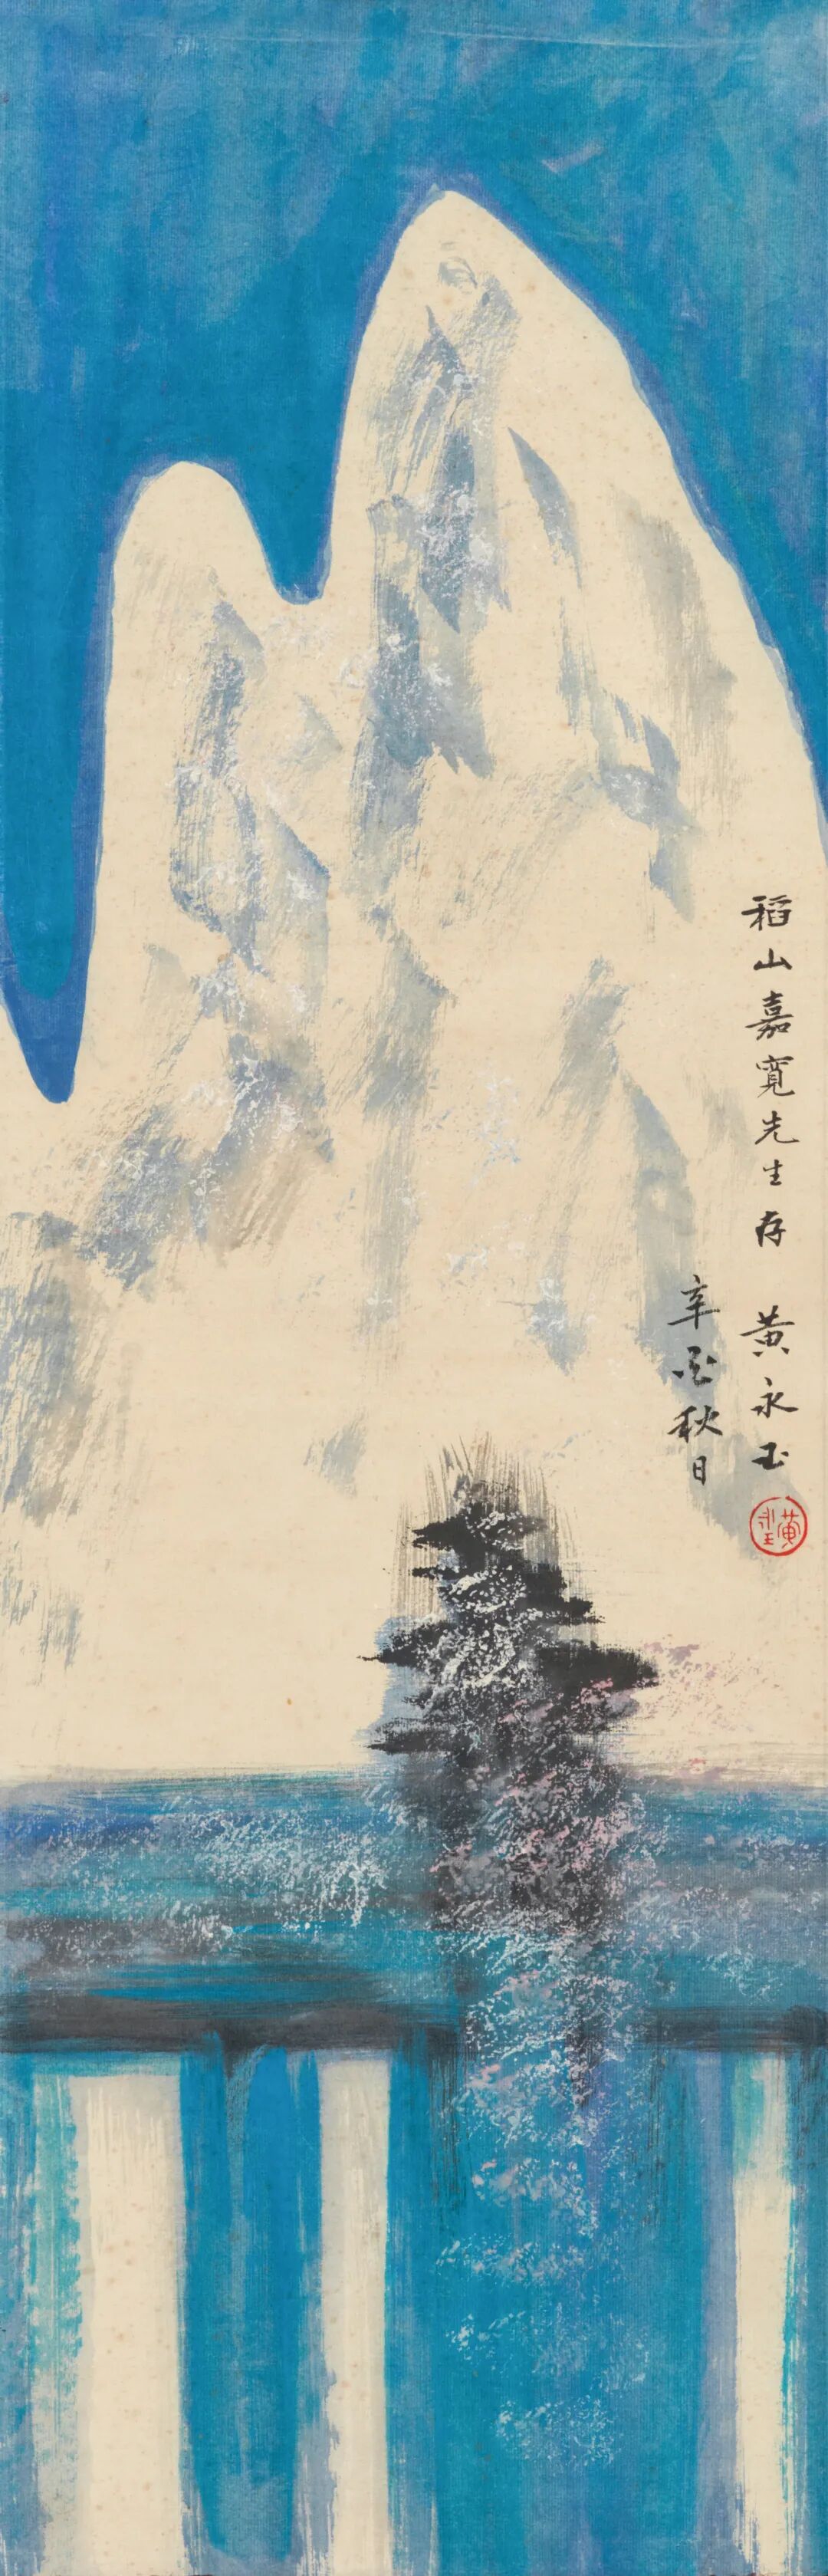 稻山嘉寛先生存 黄永玉
辛酉秋日
黄永玉